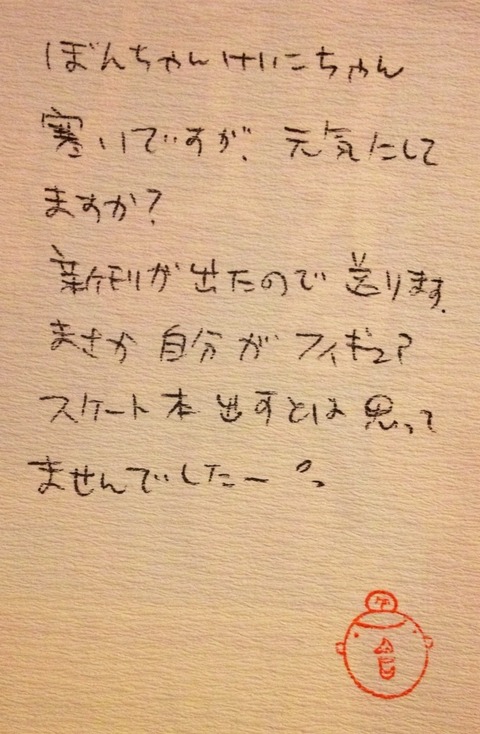 ぼんちゃんけいこちゃん
寒いですが、元気にして
ますか？
新刊が出たので送ります。
まさか自分がフィギュア
スケート本出すとは思って
ませんでしたー